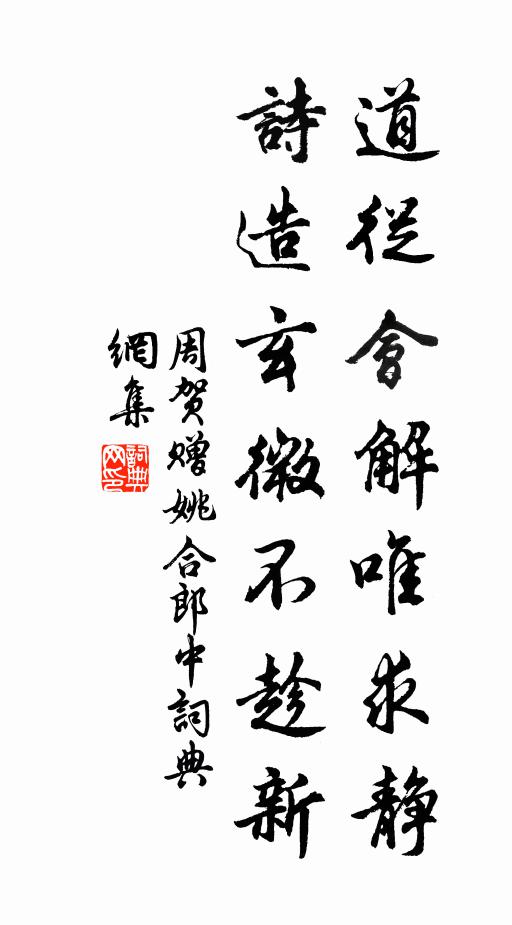 道從會解唯求静
詩造玄微不趁新
周贺赠姚合郎中詞典
網集
詞典
网印